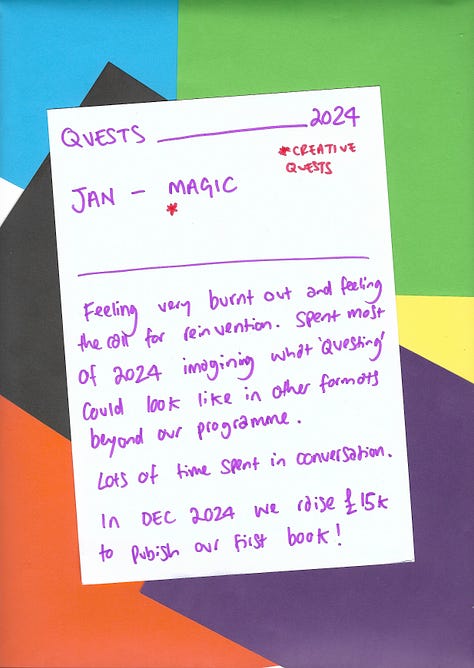 QUESTS ____________ 2024
*CREATIVE
QUESTS
JAN - MAGIC
*
Feeling very burnt out and feeling
the call for reinvention. Spent most
of 2024 imagining what 'Questing'
could look like in other formats
beyond our programme.
Lots of time spent in conversation.
In DEC 2024 we raise £15k
to publish our first book!